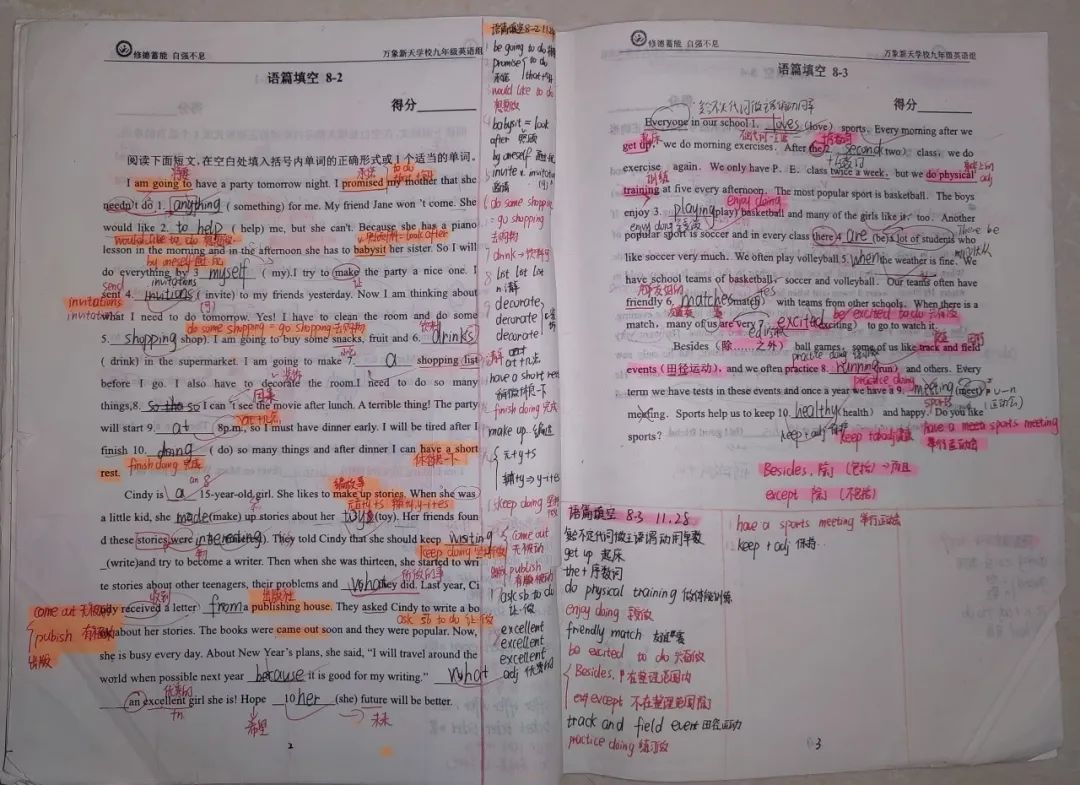 修德蓄能 自强不息 万象新天学校九年级英语组
语篇填空 8-2
得分
阅读下面短文,在空白处填入括号内单词的正确形式或1个适当的单词。
将要 承诺 to do
I am going to have a party tomorrow night. I promised my mother that she
needn't do 1. anything ( something) for me. My friend Jane won 't come. She
would like 2. to help ( help) me, but she can't. Because she has a piano
would like to do 想要做 v. 照顾 = look after
lesson in the morning and in the afternoon she has to babysit her sister. So I will
by oneself
do everything by 3 myself ( my).I try to make the party a nice one. I
send invitations 让
sent 4. invitions ( invite) to my friends yesterday. Now I am thinking about
invitations
what I need to do tomorrow. Yes! I have to clean the room and do some
do some shopping = go shopping 去购物 饮料
5. shopping shop). I am going to buy some snacks, fruit and 6. drinks
( drink) in the supermarket. I am going to make 7. a shopping (list)
before I go. I also have to decorate the room.I need to do so many
things,8. so I can 't see the movie after lunch. A terrible thing! The party
will start 9. at 8p.m., so I must have dinner early. I will be tired after I
finish 10. doing ( do) so many things and after dinner I can have a short
rest. finish doing 完成 休息一下
Cindy is a 15-year-old girl. She likes to make up stories. When she was
a little kid, she made(make) up stories about her toys(toy). Her friends foun
d these stories were interesting. They told Cindy that she should keep writing
keep doing
_(write)and try to become a writer. Then when she was thirteen, she started to wri
te stories about other teenagers, their problems and what they did. Last year, Ci
收到 出版社
ndy received a letter from a publishing house. They asked Cindy to write a bo
come out
ask sb to do 让…做
ok about her stories. The books were came out soon and they were popular. Now,
出版
she is busy every day. About New Year's plans, she said, “I will travel around the
world when possible next year because it is good for my writing.” what
优秀的
an excellent girl she is! Hope 10 her (she) future will be better.
希望 未来
2
语篇填空 8-2 11.28
be going to do
promise to do
承诺 that+句
would like to do
想要做
babysit = look
after 照顾
by oneself
invite v. invitation
邀请
do some shopping
= go shopping
去购物
drink → 饮料
list list list
n. 清单
decorate
decorate
decorate
have a short rest
稍微休息一下
finish doing 完成
make up 编造
元+y+s
辅+y→y-i+es
keep doing
come out
publish
ask sb to do
让…做
excellent
excellent
excellent
adj 优秀的
修德蓄能 自强不息 万象新天学校九年级英语组
语篇填空 8-3
得分
Everyone in our school 1. loves (love) sports. Every morning after we
起床
get up, we do morning exercises. After the 2. second two) class, we do
exercise again. We only have P. E. class twice a week, but we do physical
训练 adj
training at five every afternoon. The most popular sport is basketball. The boys
enjoy doing
enjoy 3. playing play) basketball and many of the girls like it, too. Another
enjoy doing
popular sport is soccer and in every class there 4 are (be)a lot of students who
There be
like soccer very much. We often play volleyball 5. when the weather is fine. We
have school teams of basketball, soccer and volleyball. Our teams often have
friendly 6. matches match) with teams from other schools. When there is a
be excited to do
match, many of us are very 7. excited exciting) to go to watch it.
Besides (除……之外) ball games, some of us like track and field
practice doing
events (田径运动), and we often practice 8. running run) and others. Every
practice doing
term we have tests in these events and once a year we have a 9. meeting (meet)
sports
meeting. Sports help us to keep 10. healthy health) and happy. Do you like
have a sports meeting
sports? keep + adj 保持
举行运动会
Besides. 除了 (包括)
except 除了 (不包括)
语篇填空 8-3 11.28
get up 起床
the + 序数词
do physical training 做体能训练
enjoy doing
friendly match 友谊赛
be excited to do
Besides.
except 不在整理范围内
track and field event 田径运动
practice doing 练习做
have a sports meeting 举行运动会
keep + adj 保持…
3